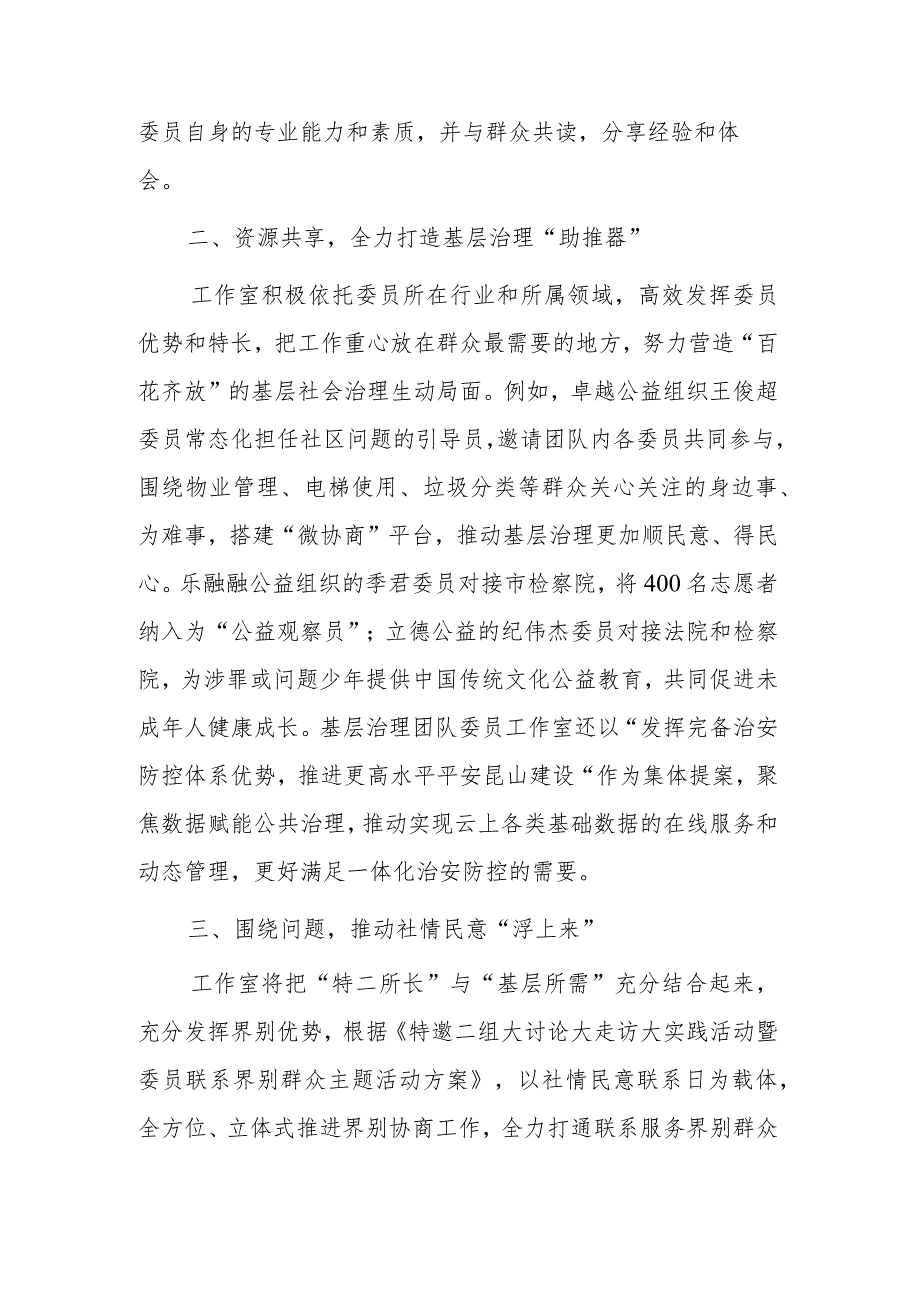 委员自身的专业能力和素质，并与群众共读，分享经验和体
会。
二、资源共享，全力打造基层治理“助推器”
工作室积极依托委员所在行业和所属领域，高效发挥委员
优势和特长，把工作重心放在群众最需要的地方，努力营造“百
花齐放”的基层社会治理生动局面。例如，卓越公益组织王俊超
委员常态化担任社区问题的引导员,邀请团队内各委员共同参与，
围绕物业管理、电梯使用、垃圾分类等群众关心关注的身边事、
为难事，搭建“微协商”平台，推动基层治理更加顺民意、得民
心。乐融融公益组织的季君委员对接市检察院，将400名志愿者
纳入为“公益观察员”；立德公益的纪伟杰委员对接法院和检察
院，为涉罪或问题少年提供中国传统文化公益教育，共同促进未
成年人健康成长。基层治理团队委员工作室还以“发挥完备治安
防控体系优势，推进更高水平平安昆山建设“作为集体提案，聚
焦数据赋能公共治理,推动实现云上各类基础数据的在线服务和
动态管理，更好满足一体化治安防控的需要。
三、围绕问题，推动社情民意“浮上来”
工作室将把“特二所长”与“基层所需”充分结合起来，
充分发挥界别优势，根据《特邀二组大讨论大走访大实践活动暨
委员联系界别群众主题活动方案》，以社情民意联系日为载体，
全方位、立体式推进界别协商工作，全力打通联系服务界别群众